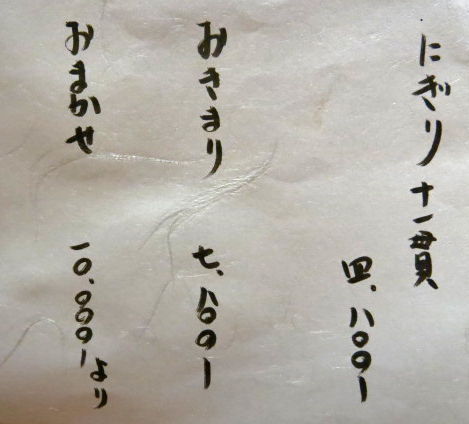 にぎり 十一貫
四、八〇〇ー
おきまり
七、八〇〇ー
おまかせ
一〇、〇〇〇ーより